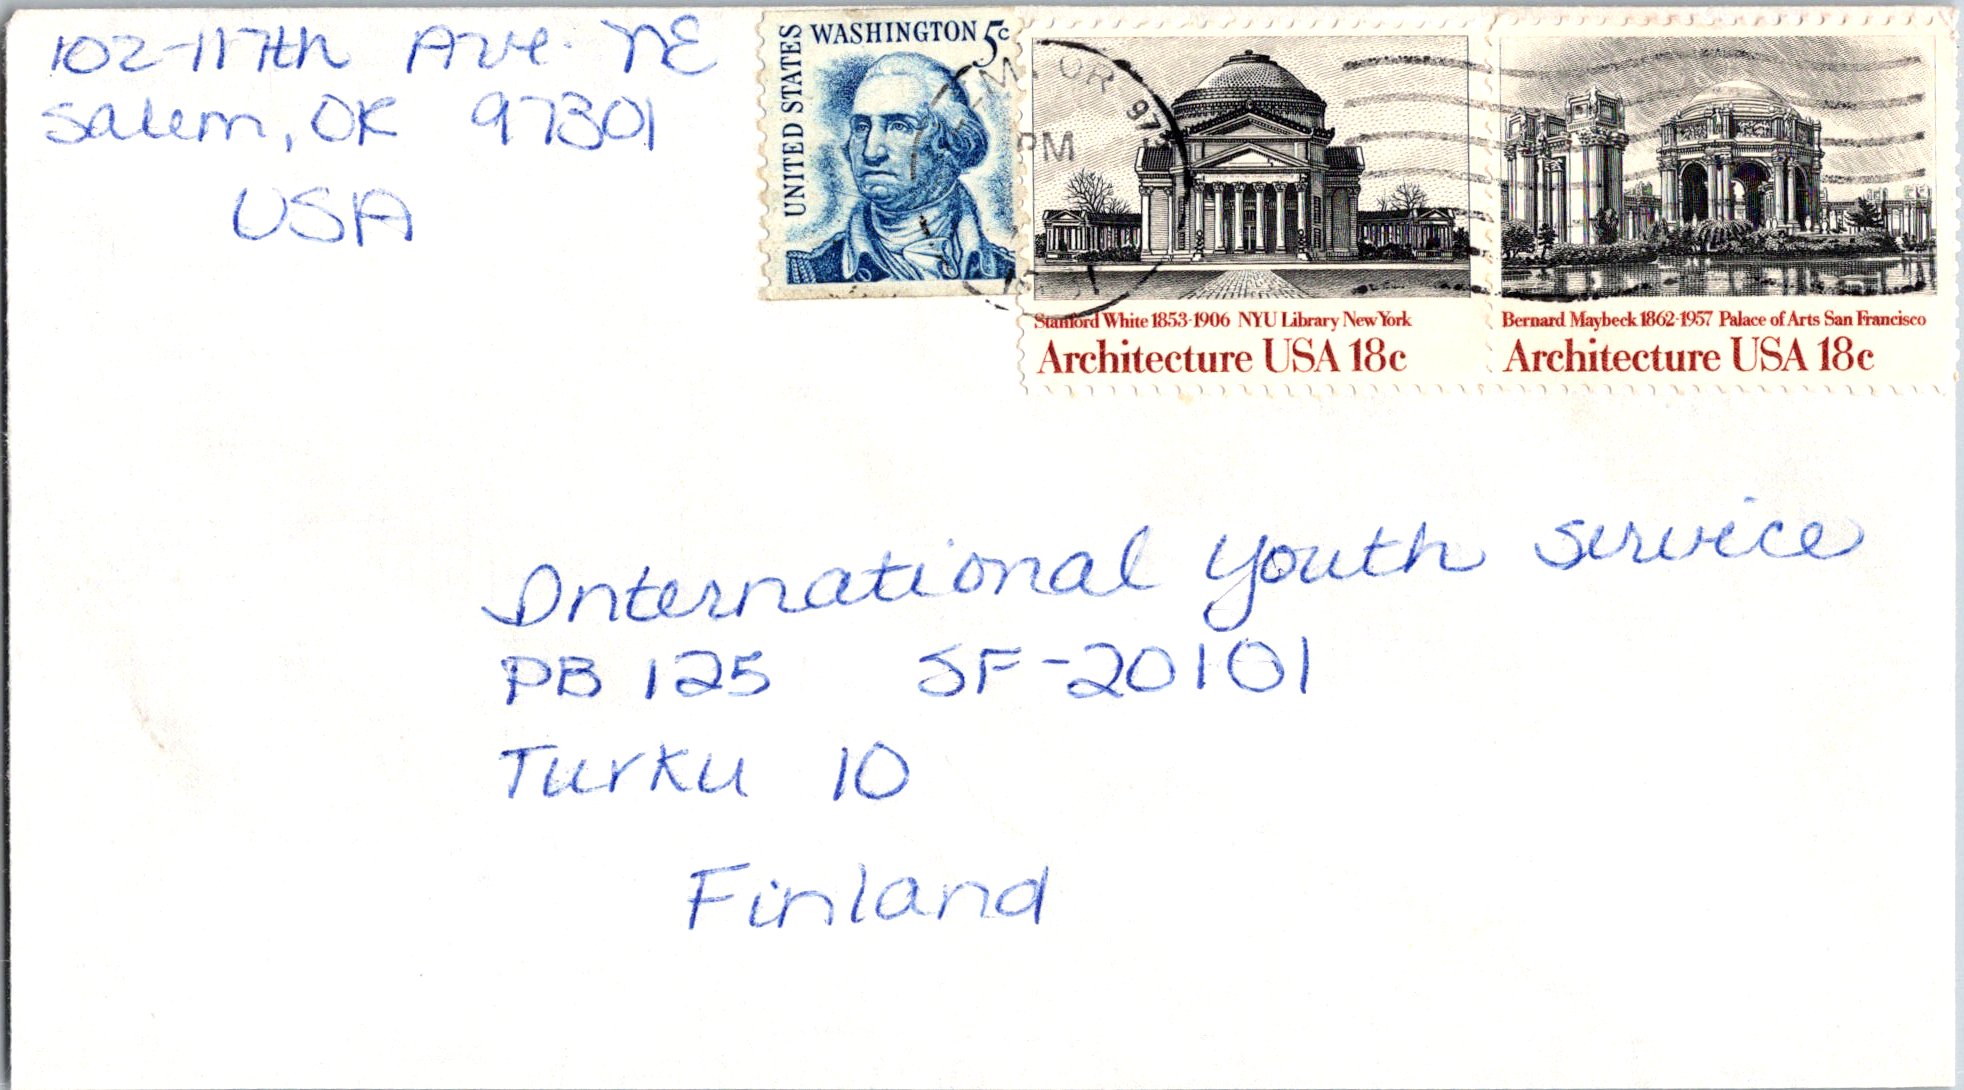 102-117th Ave. NE
Salem, OR 97301
USA
UNITED STATES
WASHINGTON 5c
OR 973
PM
Stanford White 1853-1906 NYU Library New York
Architecture USA 18c
Bernard Maybeck 1862-1957 Palace of Arts San Francisco
Architecture USA 18c
International Youth Service
PB 125 SF-20101
Turku 10
Finland